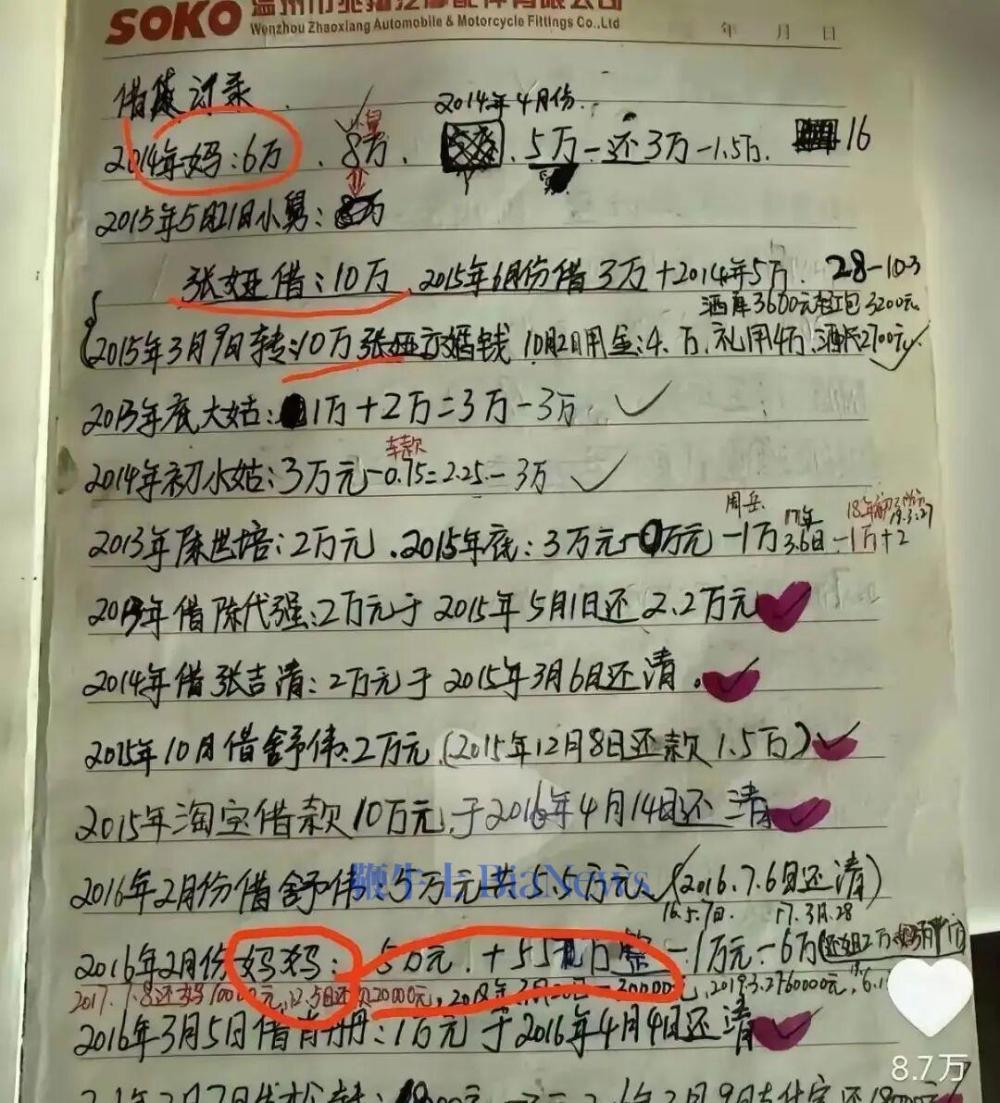 SOKO 温州市兆翔汽摩配件有限公司
Wenzhou Zhaoxiang Automobile & Motorcycle Fittings Co.,Ltd
年 月 日
借 记录
2014年4月份
2014年妈:6万 . 8万 . 5万-还3万-1.5万. 16
2015年5月21日小舅:
张娅借:10万 2015年6月份借3万+2014年5万. 28-10.3
3600元 红包3200元
2015年3月9日转:10万张娅 婚钱 10月2日用金:4.万.礼用4万. 2700元
2013年底大姑: 1万+2万=3万-3万
车款
2014年初小姑:3万元-0.75=2.25-3万
周岳 17年 18年
2013年陈世培:2万元.2015年底:3万元- 万元-1万 3.6日-1万+2
2013年借陈代强:2万元于2015年5月1日还2.2万元
2014年借张吉清:2万元于2015年3月6日还清.
2015年10月借舒伟:2万元(2015年12月8日还款1.5万)
2015年淘宝借款10万元,于2016年4月14日还清
鞭牛士 BiaNews
2016年2月份借舒伟:5万元 5.5万元(2016.7.6日还清)
16.5.7日. 17.3月.28
2016年2月份妈妈:5万元.+5.5 整-1万元-6万
2017.7.8还妈10000元,12.5日还 20000元,2018年2月 30000元,2019.3.2760000元,
2016年3月5日借 丹:1万元于2016年4月4日还清
8.7万